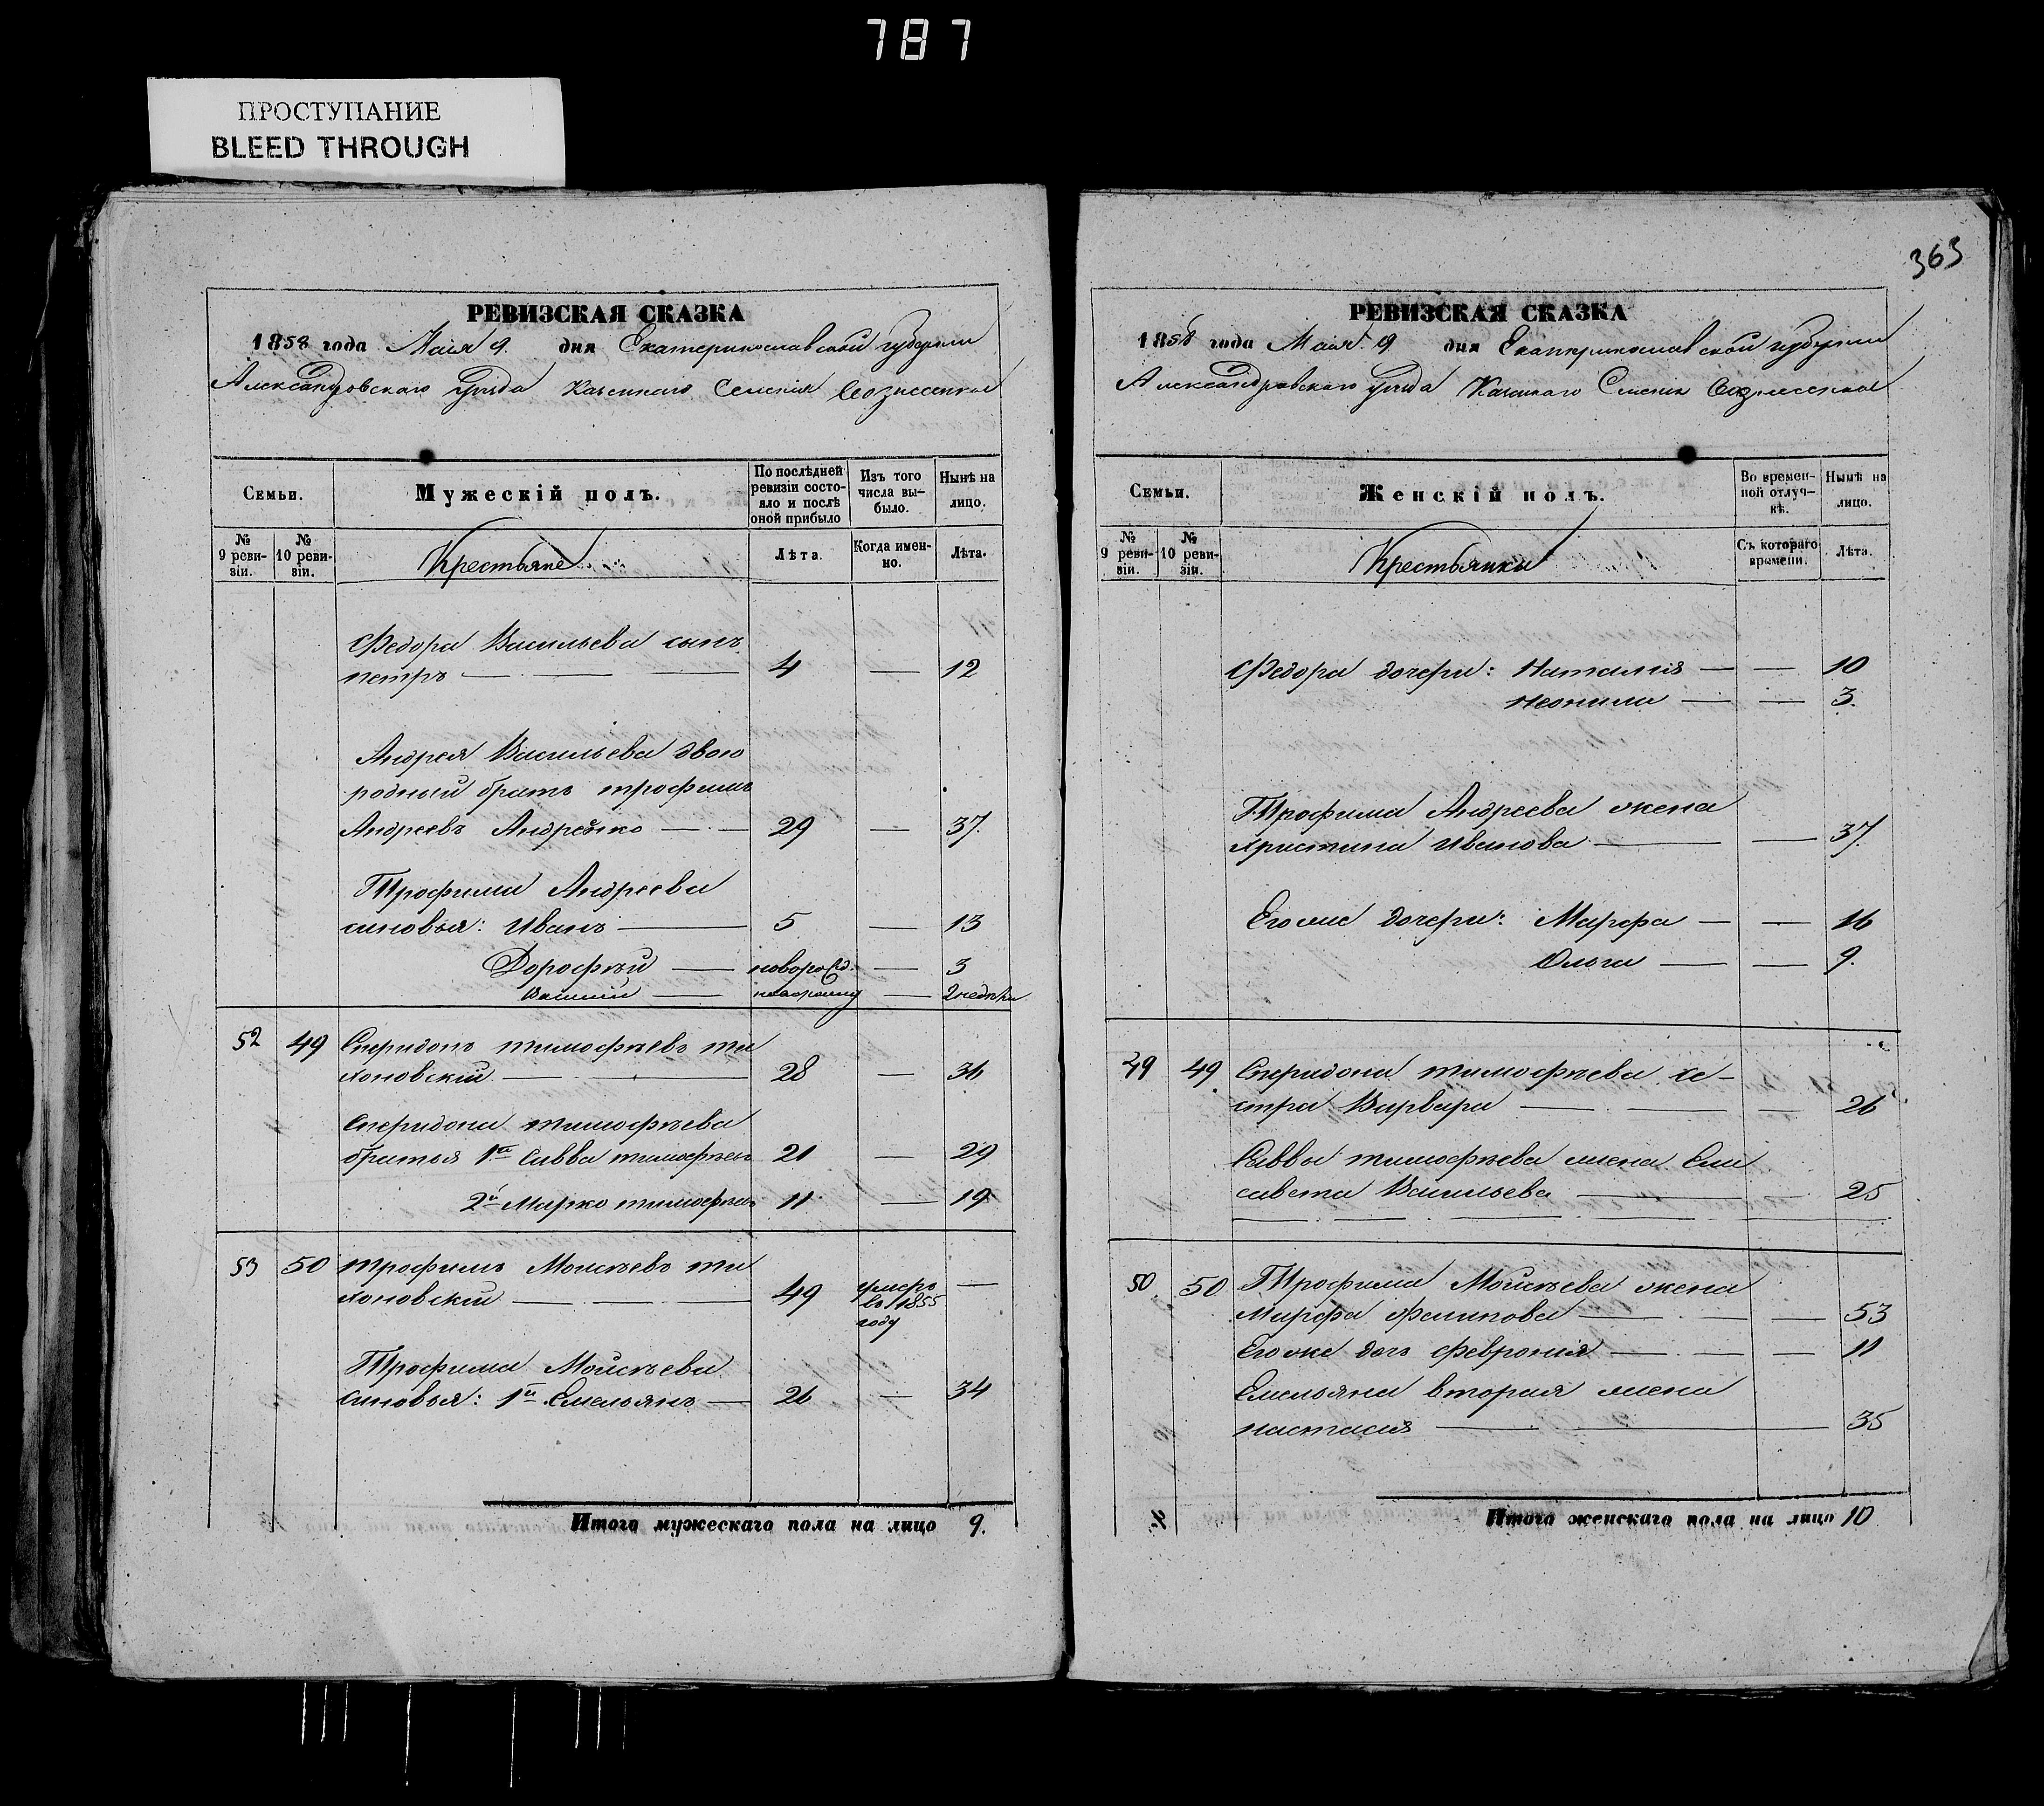 787
ПРОСТУПАНИЕ
BLEED THROUGH
РЕВИЗСКАЯ СКАЗКА
1858 года Маія 9. дня Екатеринославской губерніи
Александровскаго уѣзда Казеннаго Селенія Вознесенки
Семьи.
Мужескій полъ.
По послѣдней ревизіи состояло и послѣ оной прибыло
Изъ того числа выбыло.
Нынѣ на лицо.
№ 9 ревизіи.
№ 10 ревизіи.
Крестьяне
Лѣта.
Когда именно.
Лѣта.
Федора Васильева сынъ
петръ — 4 — 12
Андрея Васильева двою
родный братъ трофимъ
Андреевъ — 29 — 37.
Трофима Андреева
синовья: Иванъ — 5 — 13
Дорофѣй — поворожд. — 3
новорожд — 2 недѣли
52 49 Спиридонъ тимофѣевъ ти
хоновскій — 28 — 36
Спиридона тимофѣева
братья 1й Савва тимофѣевъ 21 — 29
2й Марко тимофѣевъ 11 — 19
53 50 трофимъ Моисѣевъ ти
хоновскій — 49 умеръ въ 1855 году —
Трофима Мойсѣева
синовья: 1й Емельянъ — 26 — 34
Итого мужескаго пола на лицо 9.
363
РЕВИЗСКАЯ СКАЗКА
1858 года Маія 9 дня Екатеринославской губерніи
Александровскаго уѣзда Казеннаго Селенія Вознесенки
Семьи.
Женскій полъ.
Во временной отлучкѣ.
Нынѣ на лицо.
№ 9 ревизіи.
№ 10 ревизіи.
Крестьянки
Съ котораго времени.
Лѣта.
Федора дочери: Наталия — — 10
Неонила — — 3.
Трофима Андреева жена
Христина Иванова — — 37.
Его же дочери: Марфа — — 16
Ольга — — 9.
49 49 Спиридона тимофѣева се-
стра Варвара — — 26
Саввы тимофѣева жена Ели
савета Васильева — 25
50. 50 Трофима Мойсѣева жена
Марфа Филипова — — 53
Его же дочь феврония — — 11
Емельяна вторая жена
настасия — 35
Итого женскаго пола на лицо 10